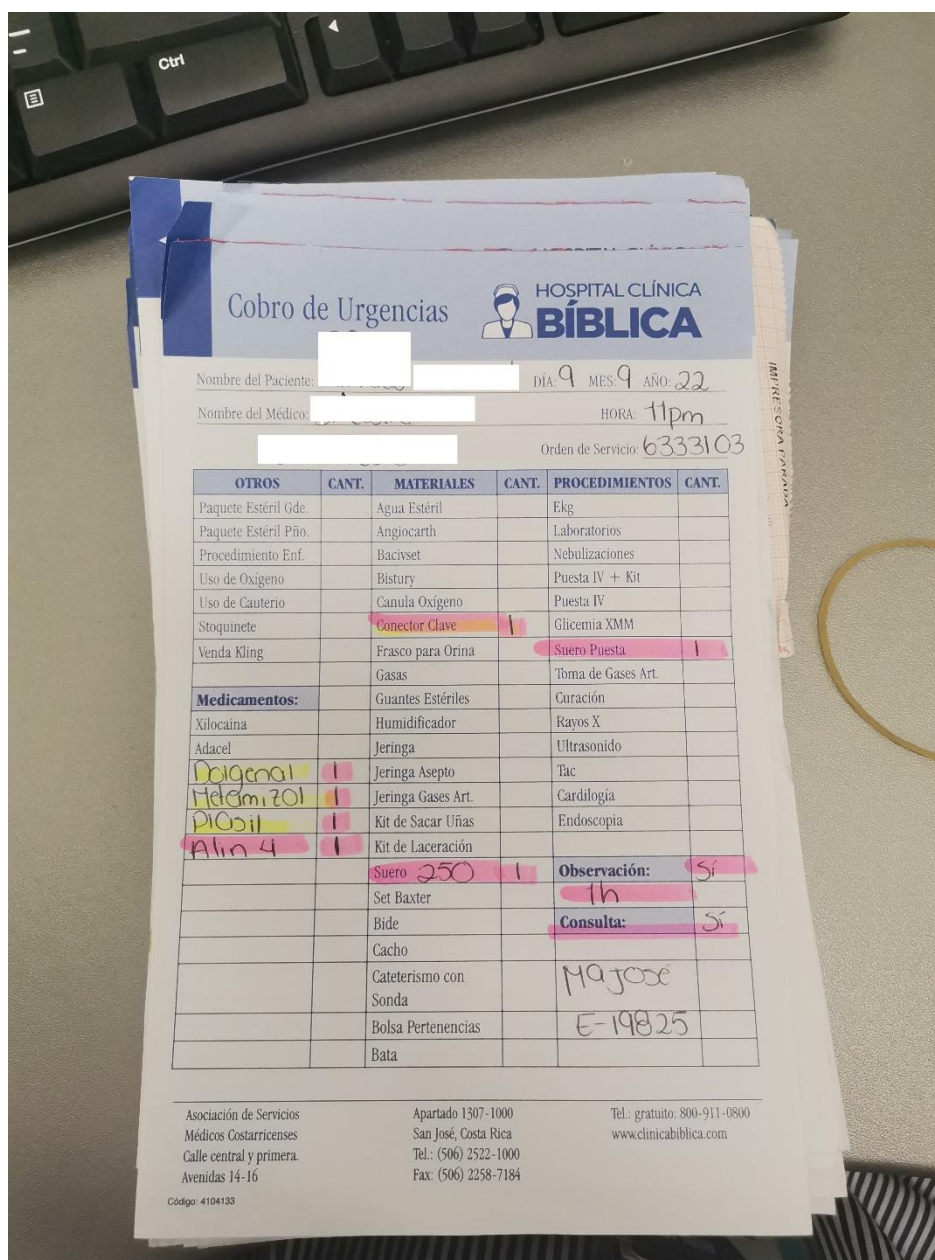 Ctrl
Cobro de Urgencias
HOSPITAL CLÍNICA
BÍBLICA
Nombre del Paciente: DÍA: 9 MES: 9 AÑO: 22
Nombre del Médico: HORA: 11pm
Orden de Servicio: 6333103
IMPRESORA PARADA
OTROS CANT. MATERIALES CANT. PROCEDIMIENTOS CANT.
Paquete Estéril Gde. Agua Estéril Ekg
Paquete Estéril Pño. Angiocarth Laboratorios
Procedimiento Enf. Bacivset Nebulizaciones
Uso de Oxígeno Bistury Puesta IV + Kit
Uso de Cauterio Canula Oxígeno Puesta IV
Stoquinete Conector Clave 1 Glicemia XMM
Venda Kling Frasco para Orina Suero Puesta 1
Gasas Toma de Gases Art.
Medicamentos: Guantes Estériles Curación
Xilocaina Humidificador Rayos X
Adacel Jeringa Ultrasonido
Dolgenal 1 Jeringa Asepto Tac
Metamizol 1 Jeringa Gases Art. Cardilogía
Plasil 1 Kit de Sacar Uñas Endoscopia
Alin 4 1 Kit de Laceración
Suero 250 1 Observación: Sí
Set Baxter 1h
Bide Consulta: Sí
Cacho
Cateterismo con Sonda Ma José
Bolsa Pertenencias E-19825
Bata
Asociación de Servicios Apartado 1307-1000 Tel.: gratuito: 800-911-0800
Médicos Costarricenses San José, Costa Rica www.clinicabiblica.com
Calle central y primera. Tel.: (506) 2522-1000
Avenidas 14-16 Fax: (506) 2258-7184
Código: 4104133